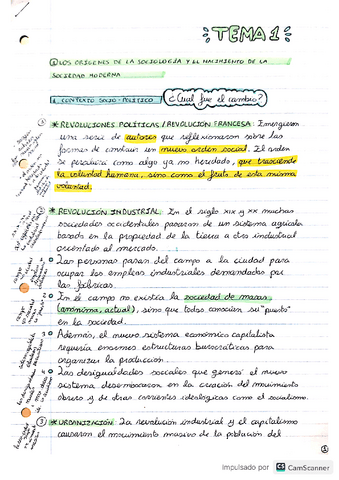 TEMA 1
① LOS ORÍGENES DE LA SOCIOLOGÍA Y EL NACIMIENTO DE LA
SOCIEDAD MODERNA
1. CONTEXTO SOCIO-POLÍTICO ¿Cual fue el cambio?
* REVOLUCIONES POLÍTICAS / REVOLUCIÓN FRANCESA: Emergieron
una serie de autores que reflexionaron sobre las
formas de construir un nuevo orden social. El orden
se percibía como algo ya no heredado, que trasciende
la voluntad humana, sino como el fruto de esta misma
voluntad.
* REVOLUCIÓN INDUSTRIAL: En el siglo XIX y XX muchas
sociedades occidentales pasaron de un sistema agrícola
basado en la propiedad de la tierra a otro industrial
orientado al mercado.
Las personas pasan del campo a la ciudad para
ocupar los empleos industriales demandados por
las fábricas.
En el campo no existía la sociedad de masas
(anónima, actual), sino que todos conocían su "puesto"
en la sociedad.
Además, el nuevo sistema económico capitalista
requería enormes estructuras burocráticas para
organizar la producción.
Las desigualdades sociales que generó el nuevo
sistema desembocaron en la creación del movimiento
obrero y de otras corrientes ideológicas como el socialismo.
* URBANIZACIÓN: La revolución industrial y el capitalismo
causaron el movimiento masivo de la población del
①
Impulsado por CS CamScanner